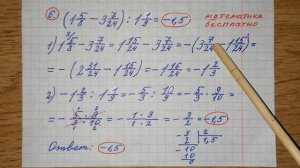 б) (1 5/8 - 3 7/24) : 1 1/9 = -1,5
математика
бесплатно
1) 1 5/8 - 3 7/24 = 1 15/24 - 3 7/24 = -(3 7/24 - 1 15/24) =
= -(2 31/24 - 1 15/24) = -1 16/24 = -1 2/3
2) -1 2/3 : 1 1/9 = -5/3 : 10/9 = -5/3 · 9/10 =
= -5·9/3·10 = -1·3/1·2 = -3/2 = -1,5
Ответ: -1,5